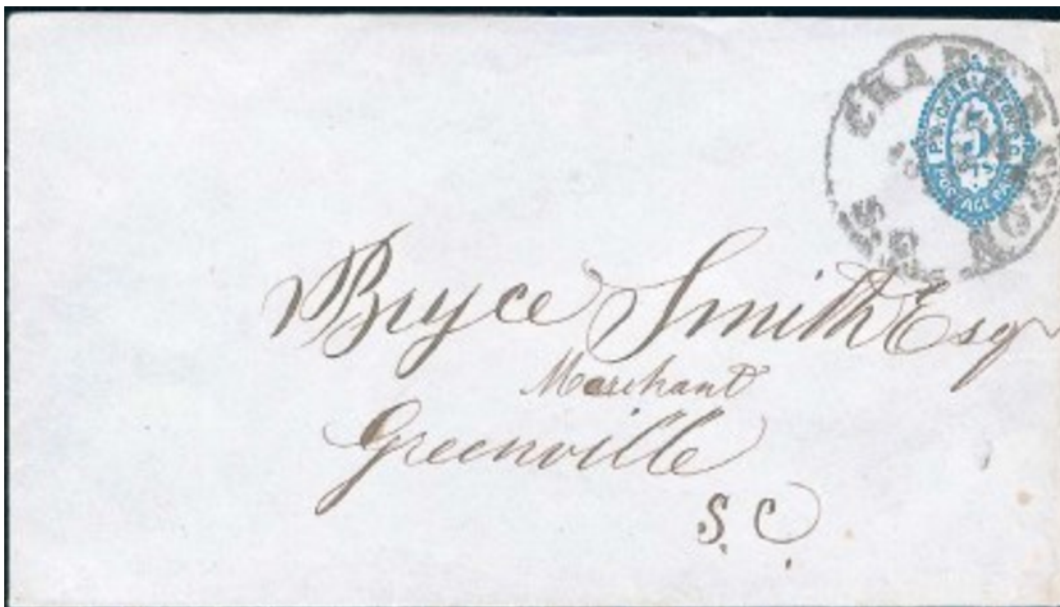 CHARLESTON
S.C.
P.O. CHARLESTON, S.C.
5
POSTAGE PAID
Bryce Smith Esq
Merchant
Greenville
S. C.